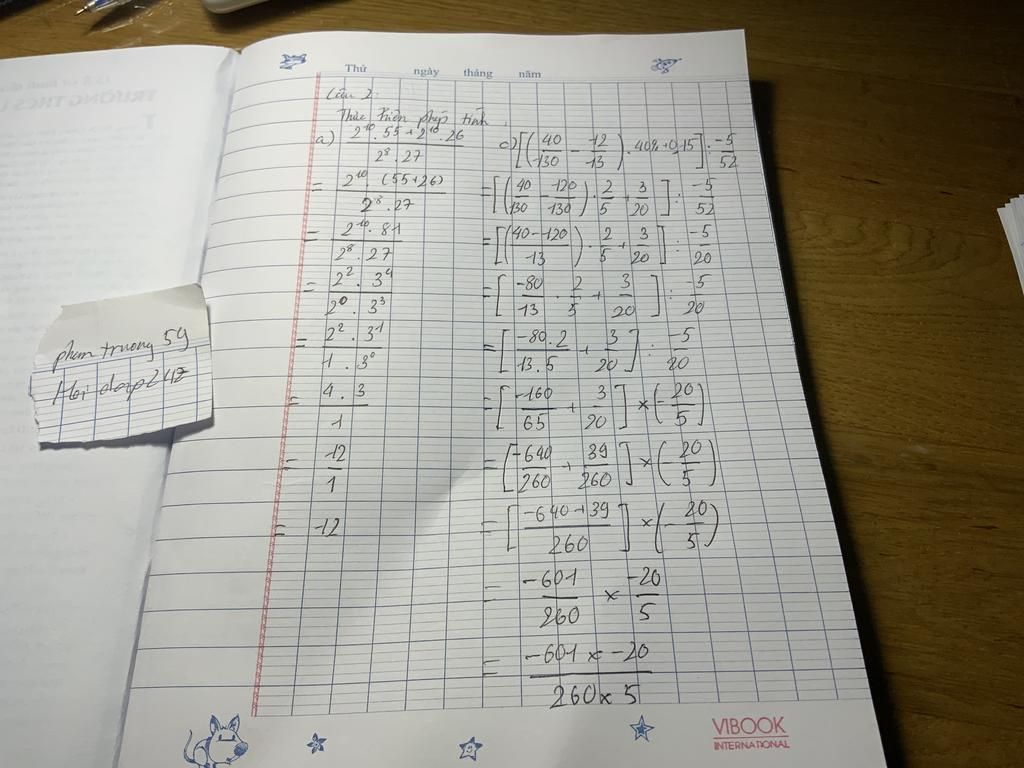 TRƯỜNG THCS
Thứ ngày tháng năm
Câu 2:
Thực hiện phép tính.
a) (2^10 . 55 + 2^10 . 26) / (2^8 . 27)
= (2^10 . (55+26)) / (2^8 . 27)
= (2^10 . 81) / (2^8 . 27)
= (2^2 . 3^4) / (2^0 . 3^3)
= (2^2 . 3^1) / (1 . 3^0)
= (4 . 3) / 1
= 12/1
= 12
c) [(40/130 - -12/13) . 40% + 0,15] : -5/52
= [(40/130 - -120/130) . 2/5 + 3/20] : -5/52
= [((40-120)/-13) . 2/5 + 3/20] : -5/20
= [-80/13 . 2/5 + 3/20] : -5/20
= [(-80.2)/(13.5) + 3/20] : -5/20
= [-160/65 + 3/20] × (-20/5)
= [-640/260 + 39/260] × (-20/5)
= [(-640+39)/260] × (-20/5)
= -601/260 × -20/5
= (-601 × -20) / (260 × 5)
pham truong 59
Hoi dap 247
VIBOOK
INTERNATIONAL